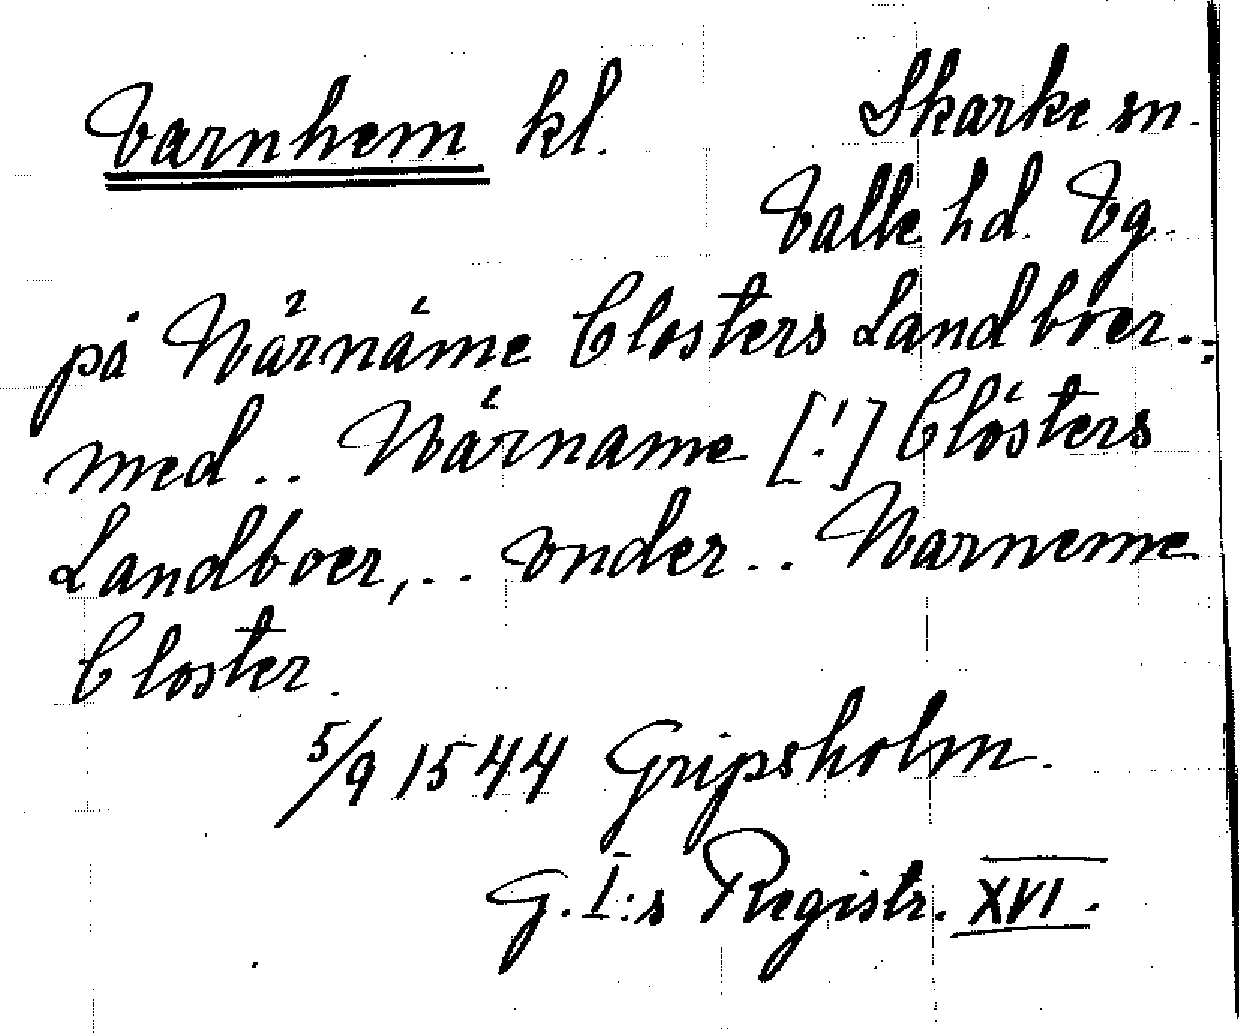 Varnhem kl. Skarke sn.
Valle hd. Vg.
på Wårnåme Closters Landboer..:
med .. Wårname [!] Clósters
Landboer, .. vnder .. Warneme
Closter.
5/9 1544 Gripsholm.
G. I:s Registr. XVI.